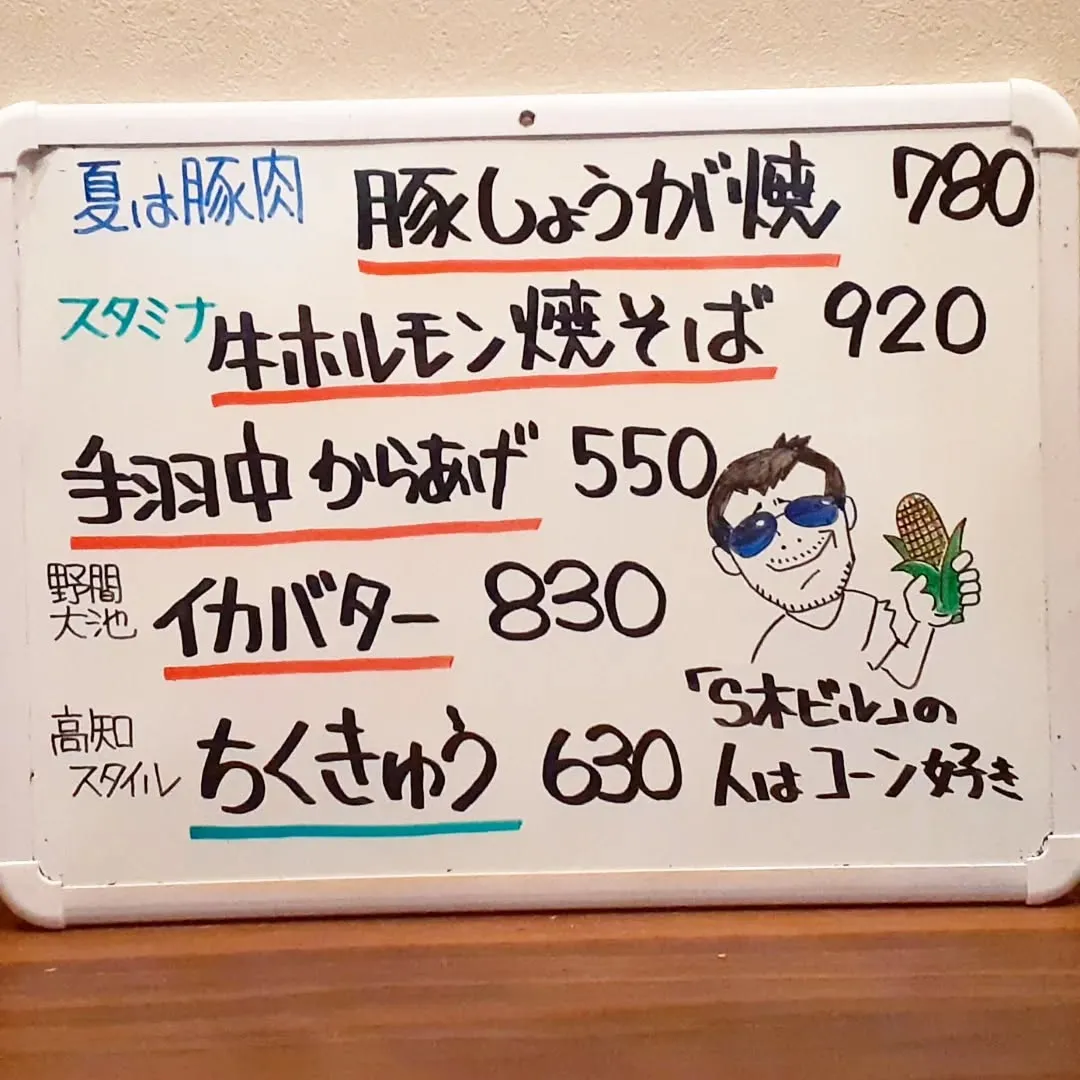 夏は豚肉 豚しょうが焼 780
スタミナ 牛ホルモン焼そば 920
手羽中からあげ 550
野間
大池 イカバター 830
高知
スタイル ちくきゅう 630
「S木ビル」の
人はコーン好き